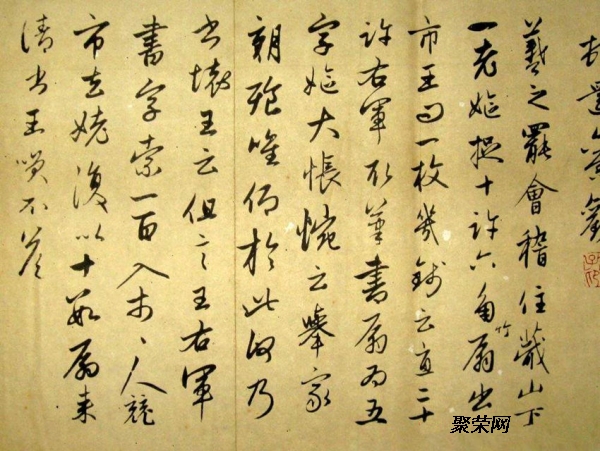 羲之罷會稽住蕺山下
一老嫗捉十許六角竹扇出
市王問一枚幾錢云直二十
許右軍取筆書扇為五
字嫗大悵惋云舉家
朝飡唯仰於此何乃
書壞王云但言王右軍
書字索一百入市〻人競
市去姥復以十數扇來
請書王笑不答
聚荣网